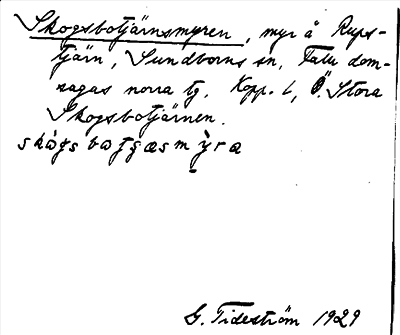 Skogsbotjärnsmyren, myr å Rups-
tjärn, Sundborns sn, Falu dom-
sagas norra tg, Kopp. l, Ö. Stora
Skogsbotjärnen.
skògsbotjæsmỳra
G. Tideström 1929